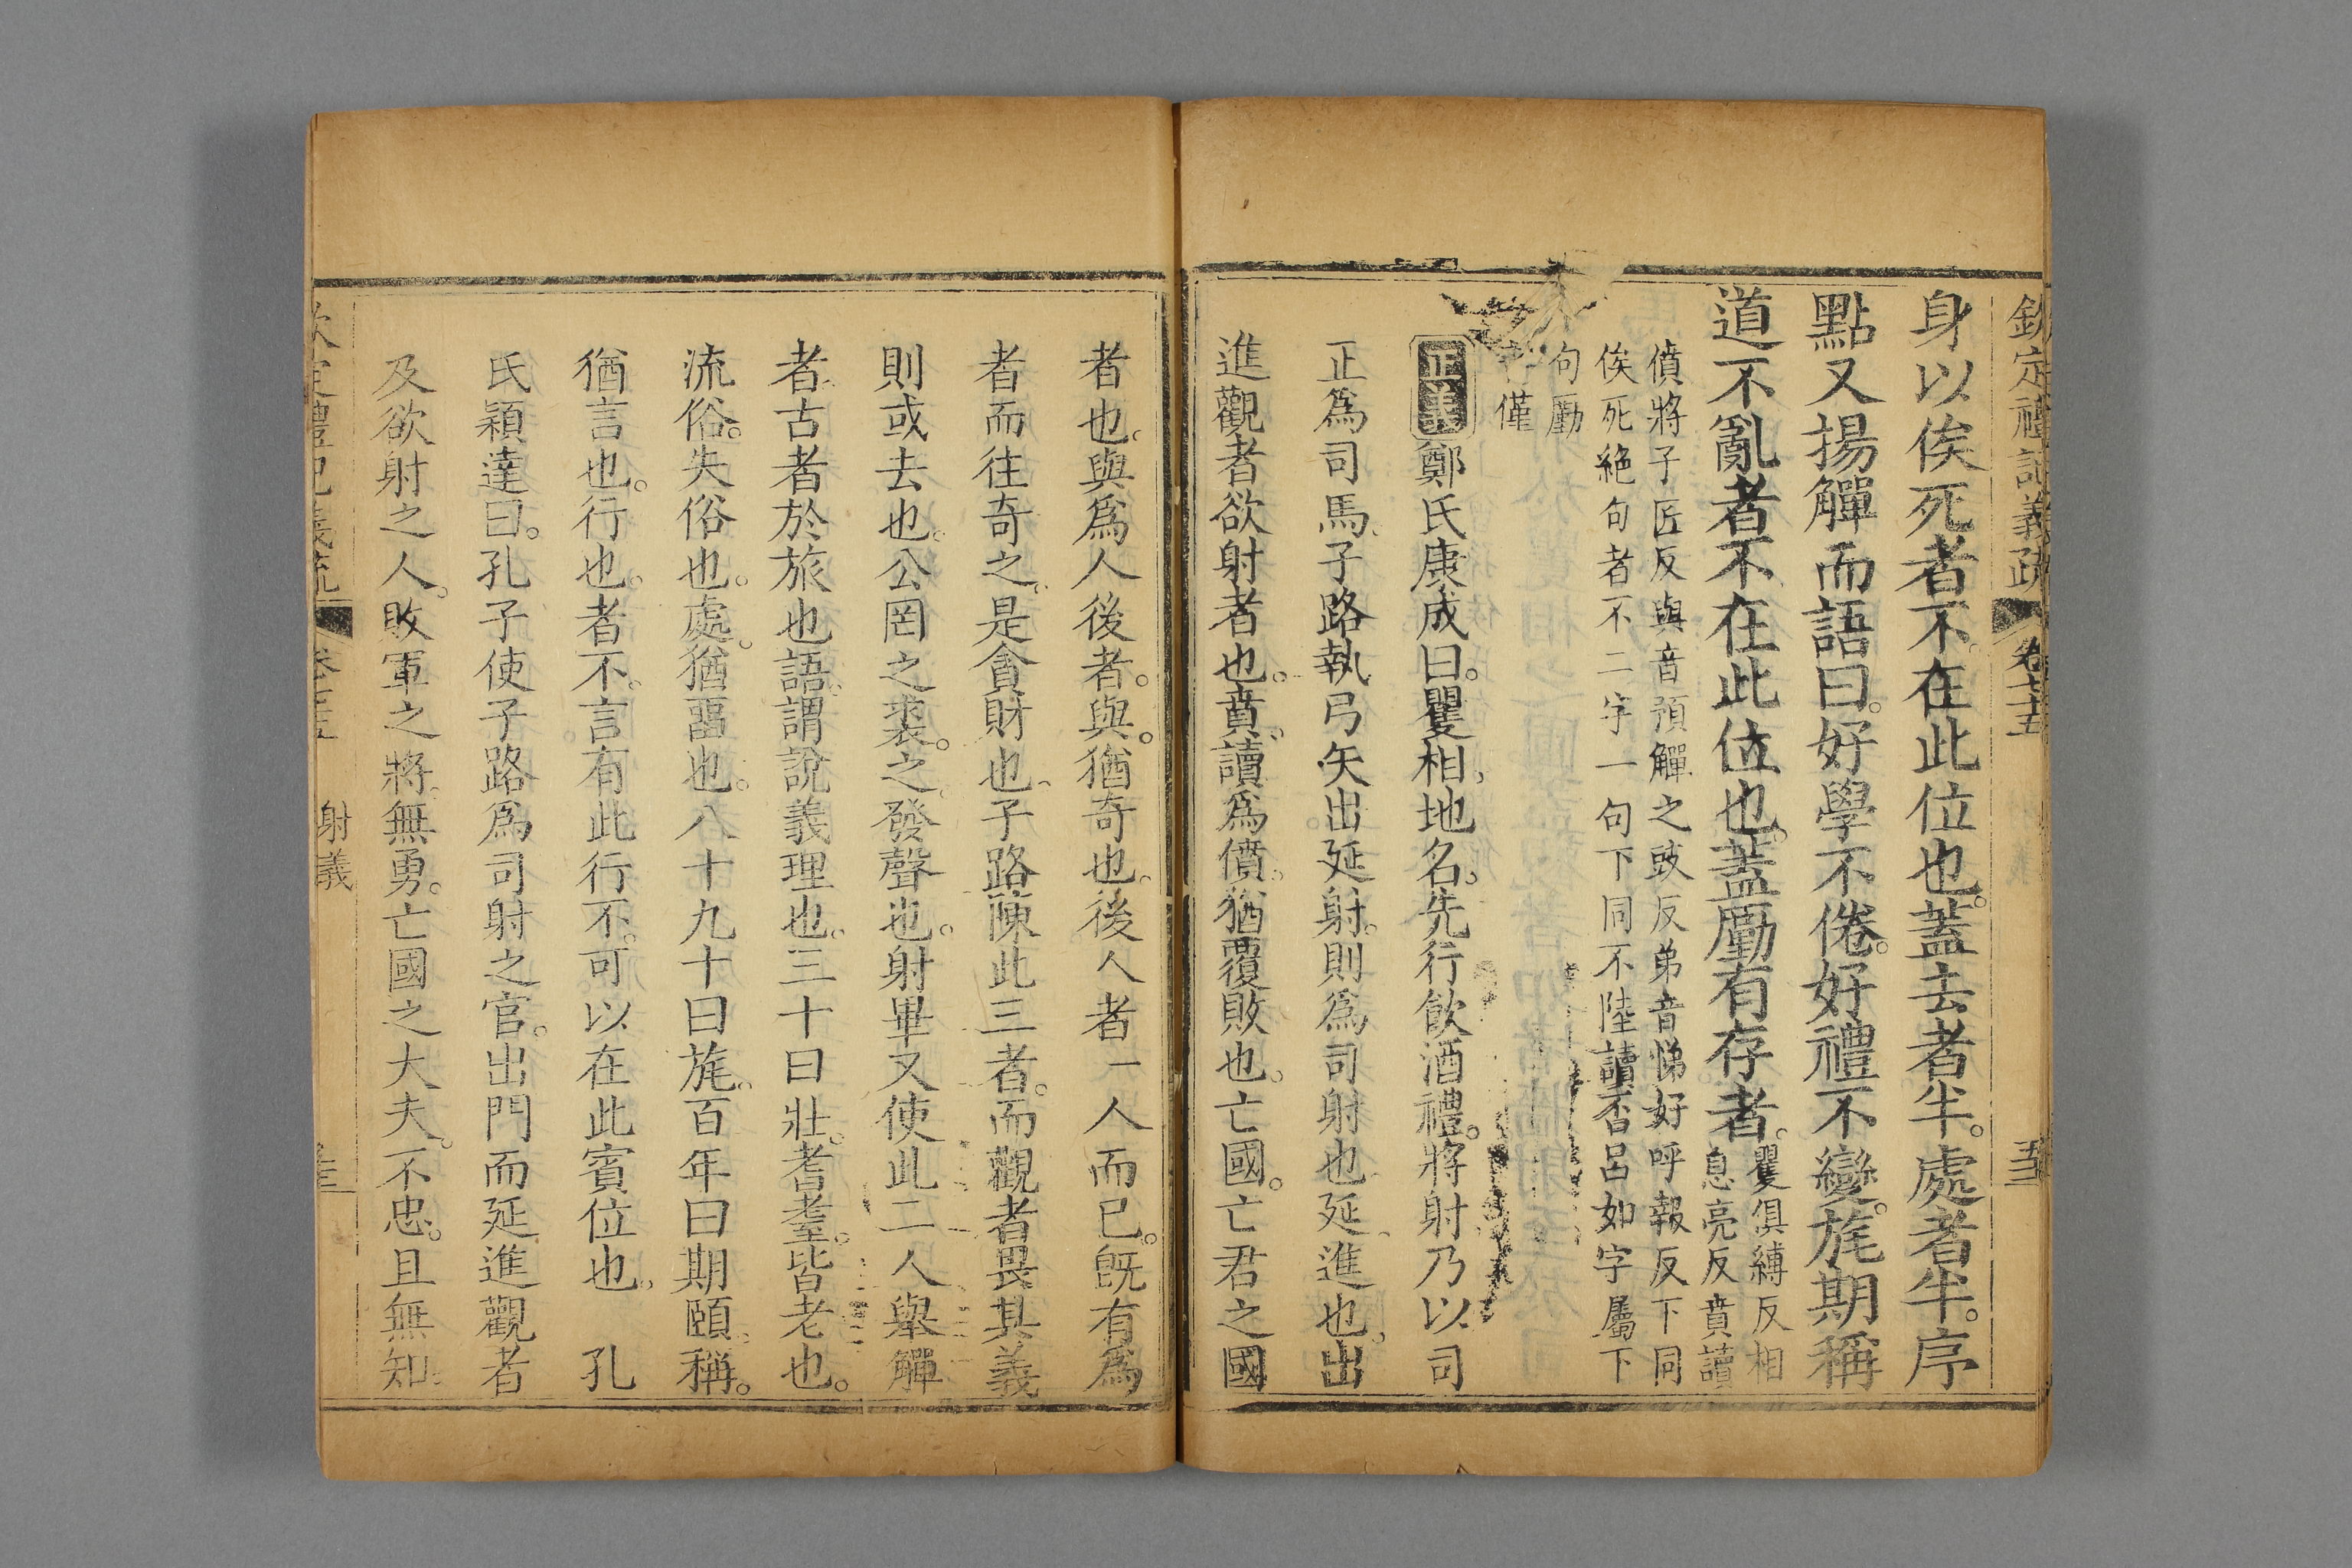 欽定禮記義疏 卷七十五 五三
身以俟死者不在此位也。蓋去者半。處者半。序
點又揚觶而語曰。好學不倦。好禮不變。旄期稱
道不亂者不在此位也。蓋勵有存者。瞿俱縛反相
息亮反賁讀
僨將子匠反與音預觶之豉反弟音悌好呼報反下同
俟死絶句者不二字一句下同不陸讀否呂如字屬下
句勵
僅
正義鄭氏康成曰。瞿相。地名。先行飲酒禮。將射乃以司
正爲司馬。子路執弓矢出延射。則爲司射也。延。進也。出
進觀者欲射者也。賁。讀爲僨。猶覆敗也。亡國。亡君之國
者也。與爲人後者。與。猶奇也。後人者一人而已。旣有爲
者而往奇之。是貪財也。子路陳此三者。而觀者畏其義
則或去也。公罔之裘。之。發聲也。射畢又使此二人舉觶
者。古者於旅也語。語。謂說義理也。三十曰壯。耆耋。皆老也。
流俗。失俗也。處。猶畱也。八十九十曰旄。百年曰期頤。稱。
猶言也。行也。者不。言有此行不。可以在此賓位也。 孔
氏穎達曰。孔子使子路爲司射之官。出門而延進觀者
及欲射之人。敗軍之將。無勇。亡國之大夫。不忠。且無知。
射義